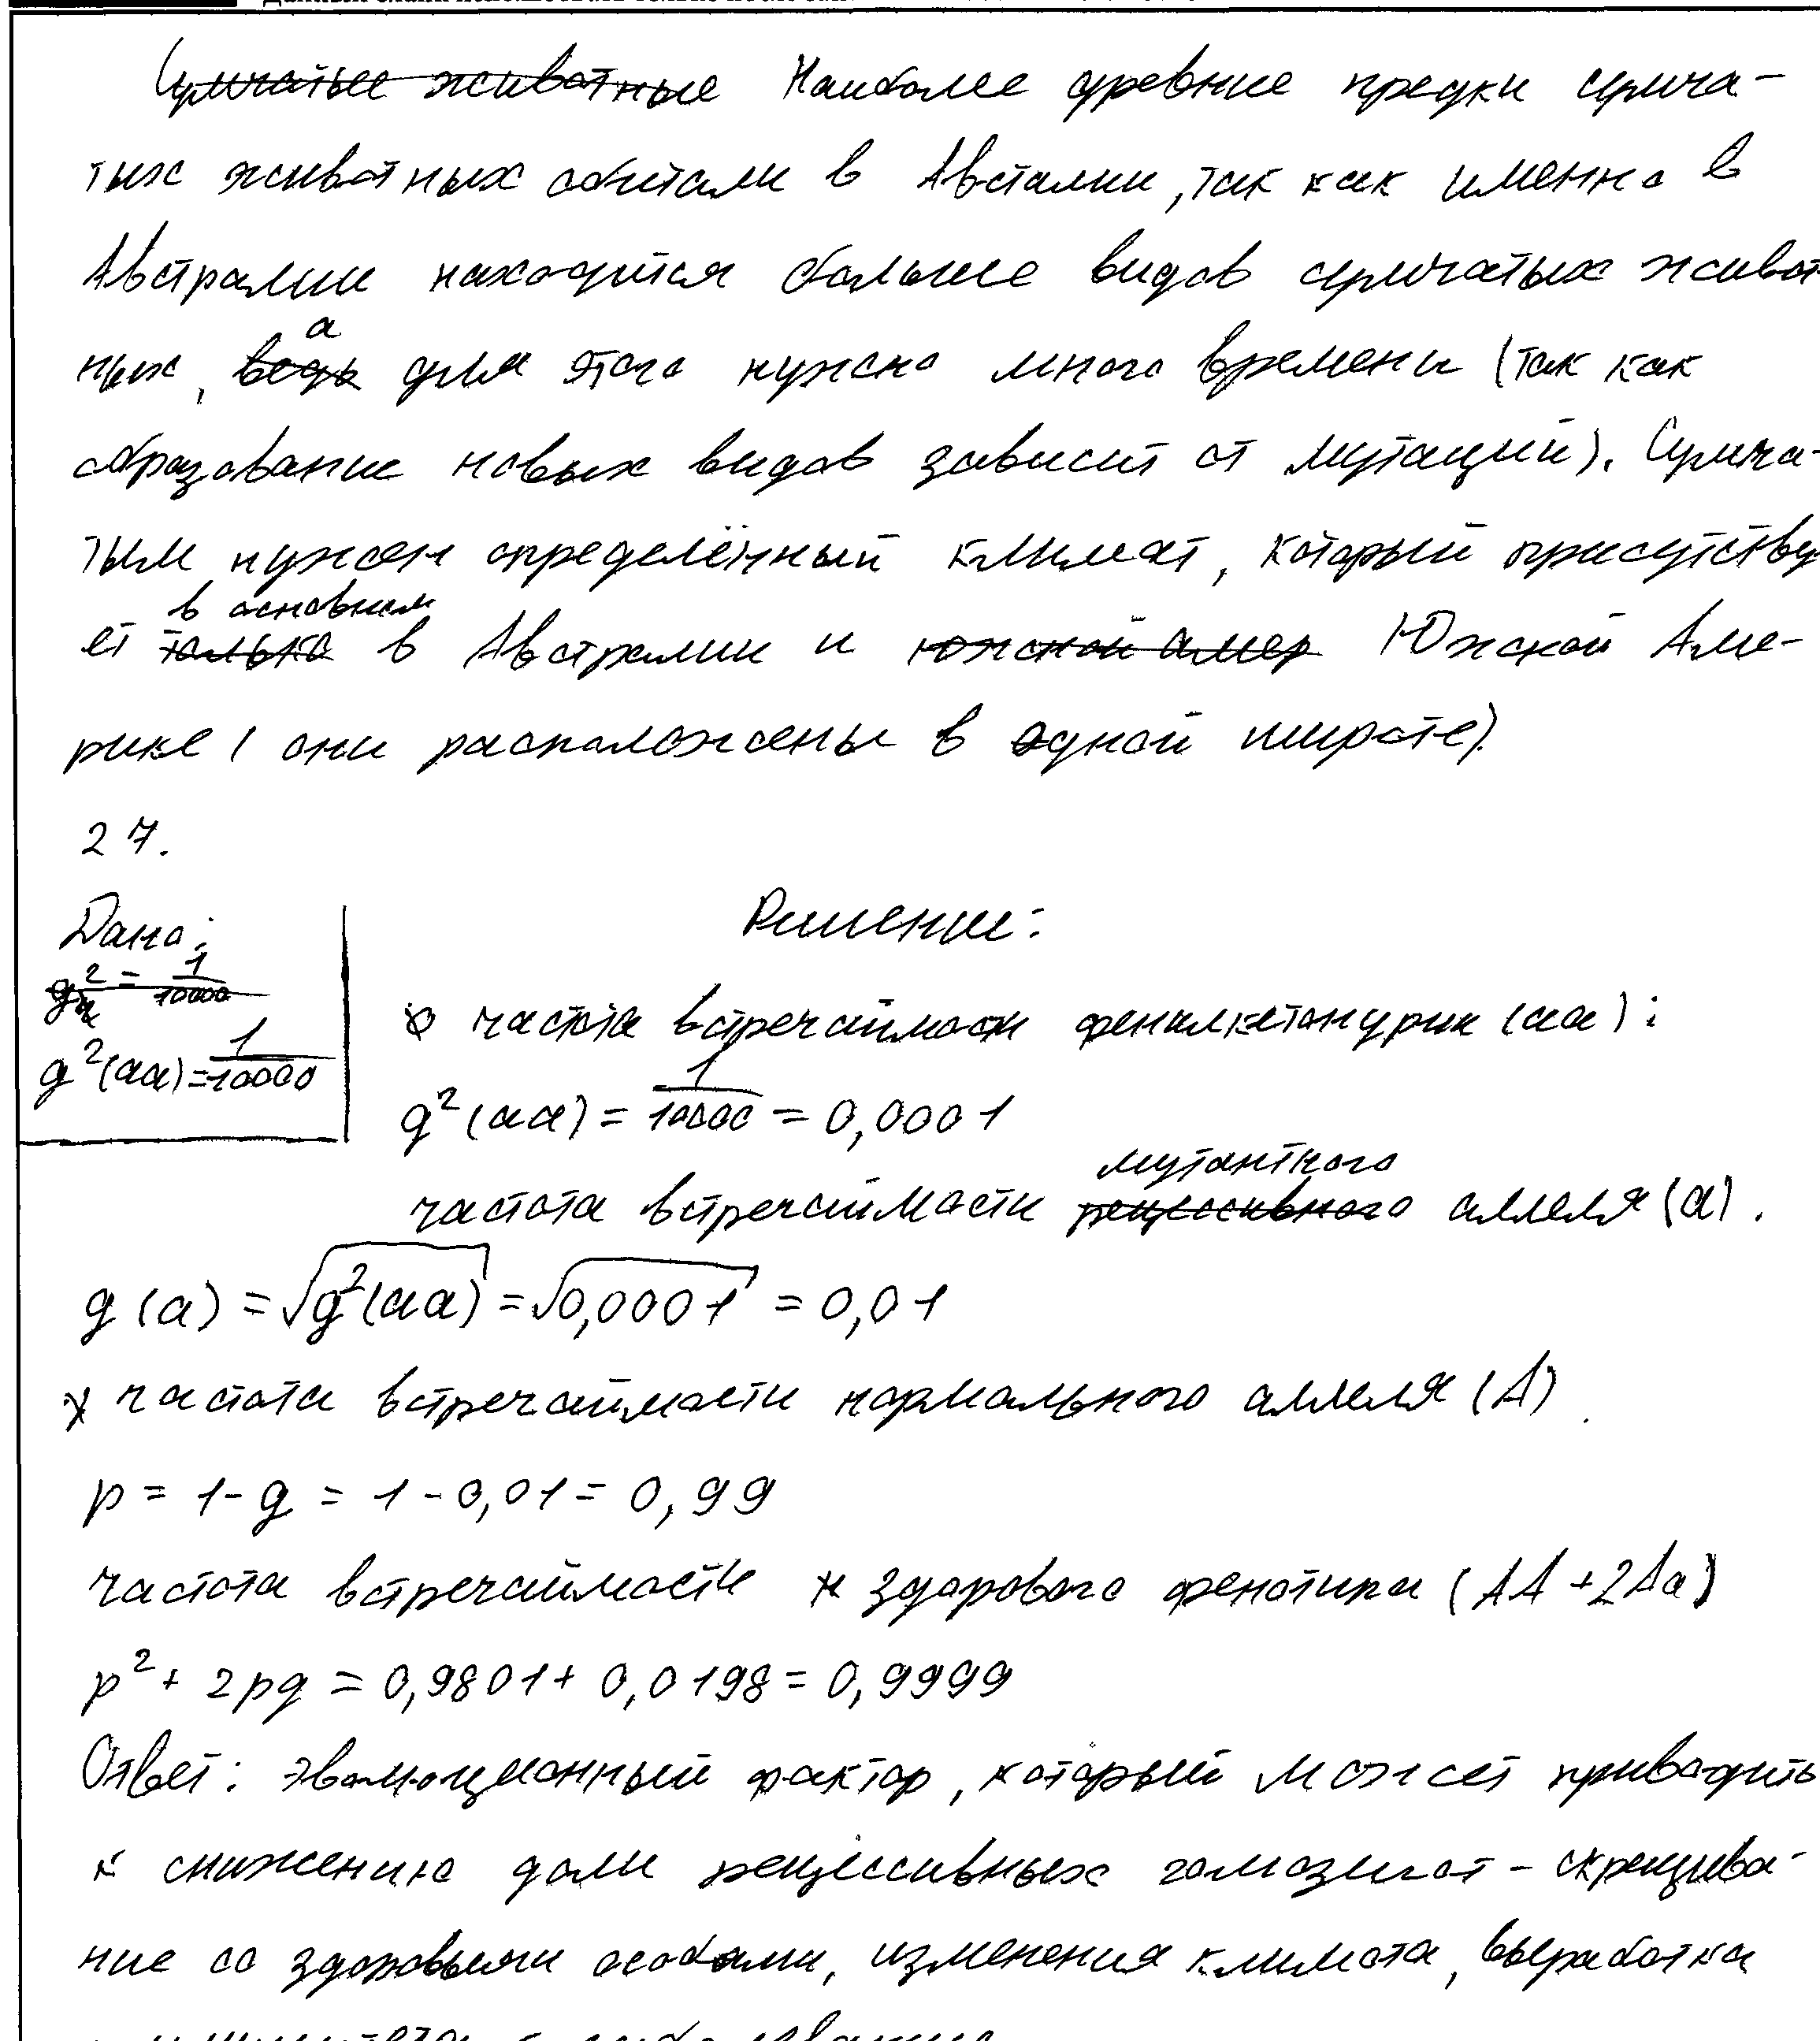 Сумчатые животные Наиболее древние предки сумча-
тых животных обитали в Австалии, так как именно в
Австралии находится больше видов сумчатых живот
а
ных, ведь для этого нужно много времени (так как
образование новых видов зависит от мутаций). Сумча-
тым нужен определённый климат, который присутству-
в основном
ет только в Австралии и южной амер Южной Аме-
рике (они расположены в одной широте).
27.
Дано:
g² = 1/10000
g²(aa) = 1/10000
Решение:
частота встречаймости фенилкетонурии (aa):
g²(aa) = 1/10000 = 0,0001
мутантного
частота встречаймости рецессивного аллеля (a).
g(a) = √g²(aa) = √0,0001 = 0,01
частота встречаймости нормального аллеля (A)
p = 1-g = 1-0,01 = 0,99
частота встречаймости здорового фенотипа (AA+2Aa)
p² + 2pg = 0,9801 + 0,0198 = 0,9999
Ответ: эволюционный фактор, который может приводить
к снижению доли рецессивных гомозигот - скрещива-
ние со здоровыми особями, изменения климата, выработка